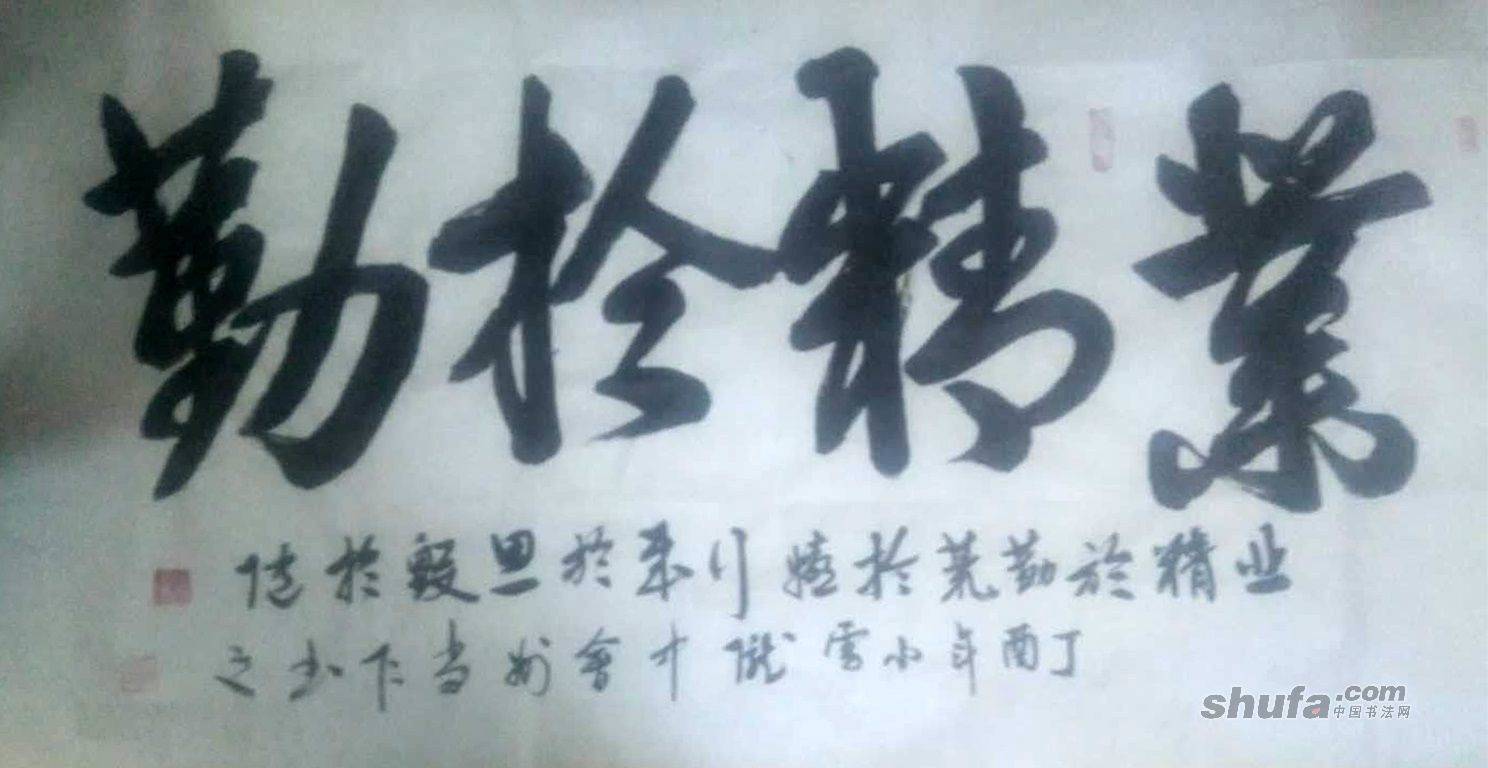 業精於勤
业精於勤荒於嬉行成於思毁於随
丁酉年小雪陇中會州书之
shufa.com
中国书法网